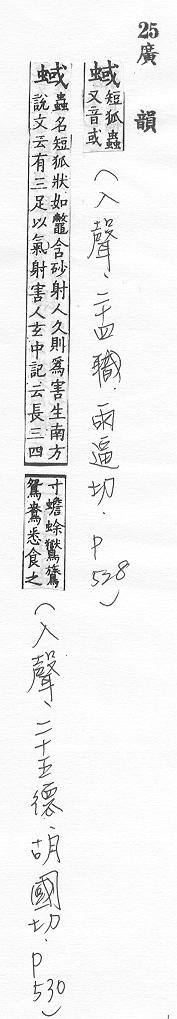 25廣韻
蜮短狐蟲
又音或
(入聲、二十四職．雨逼切．P528)
蜮蟲名短狐狀如鼈含砂射人久則爲害生南方
說文云有三足以氣射害人玄中記云長三四
寸蟾蜍鸑鷟
鴛鴦悉食之
(入聲、二十五德．胡國切．P530)